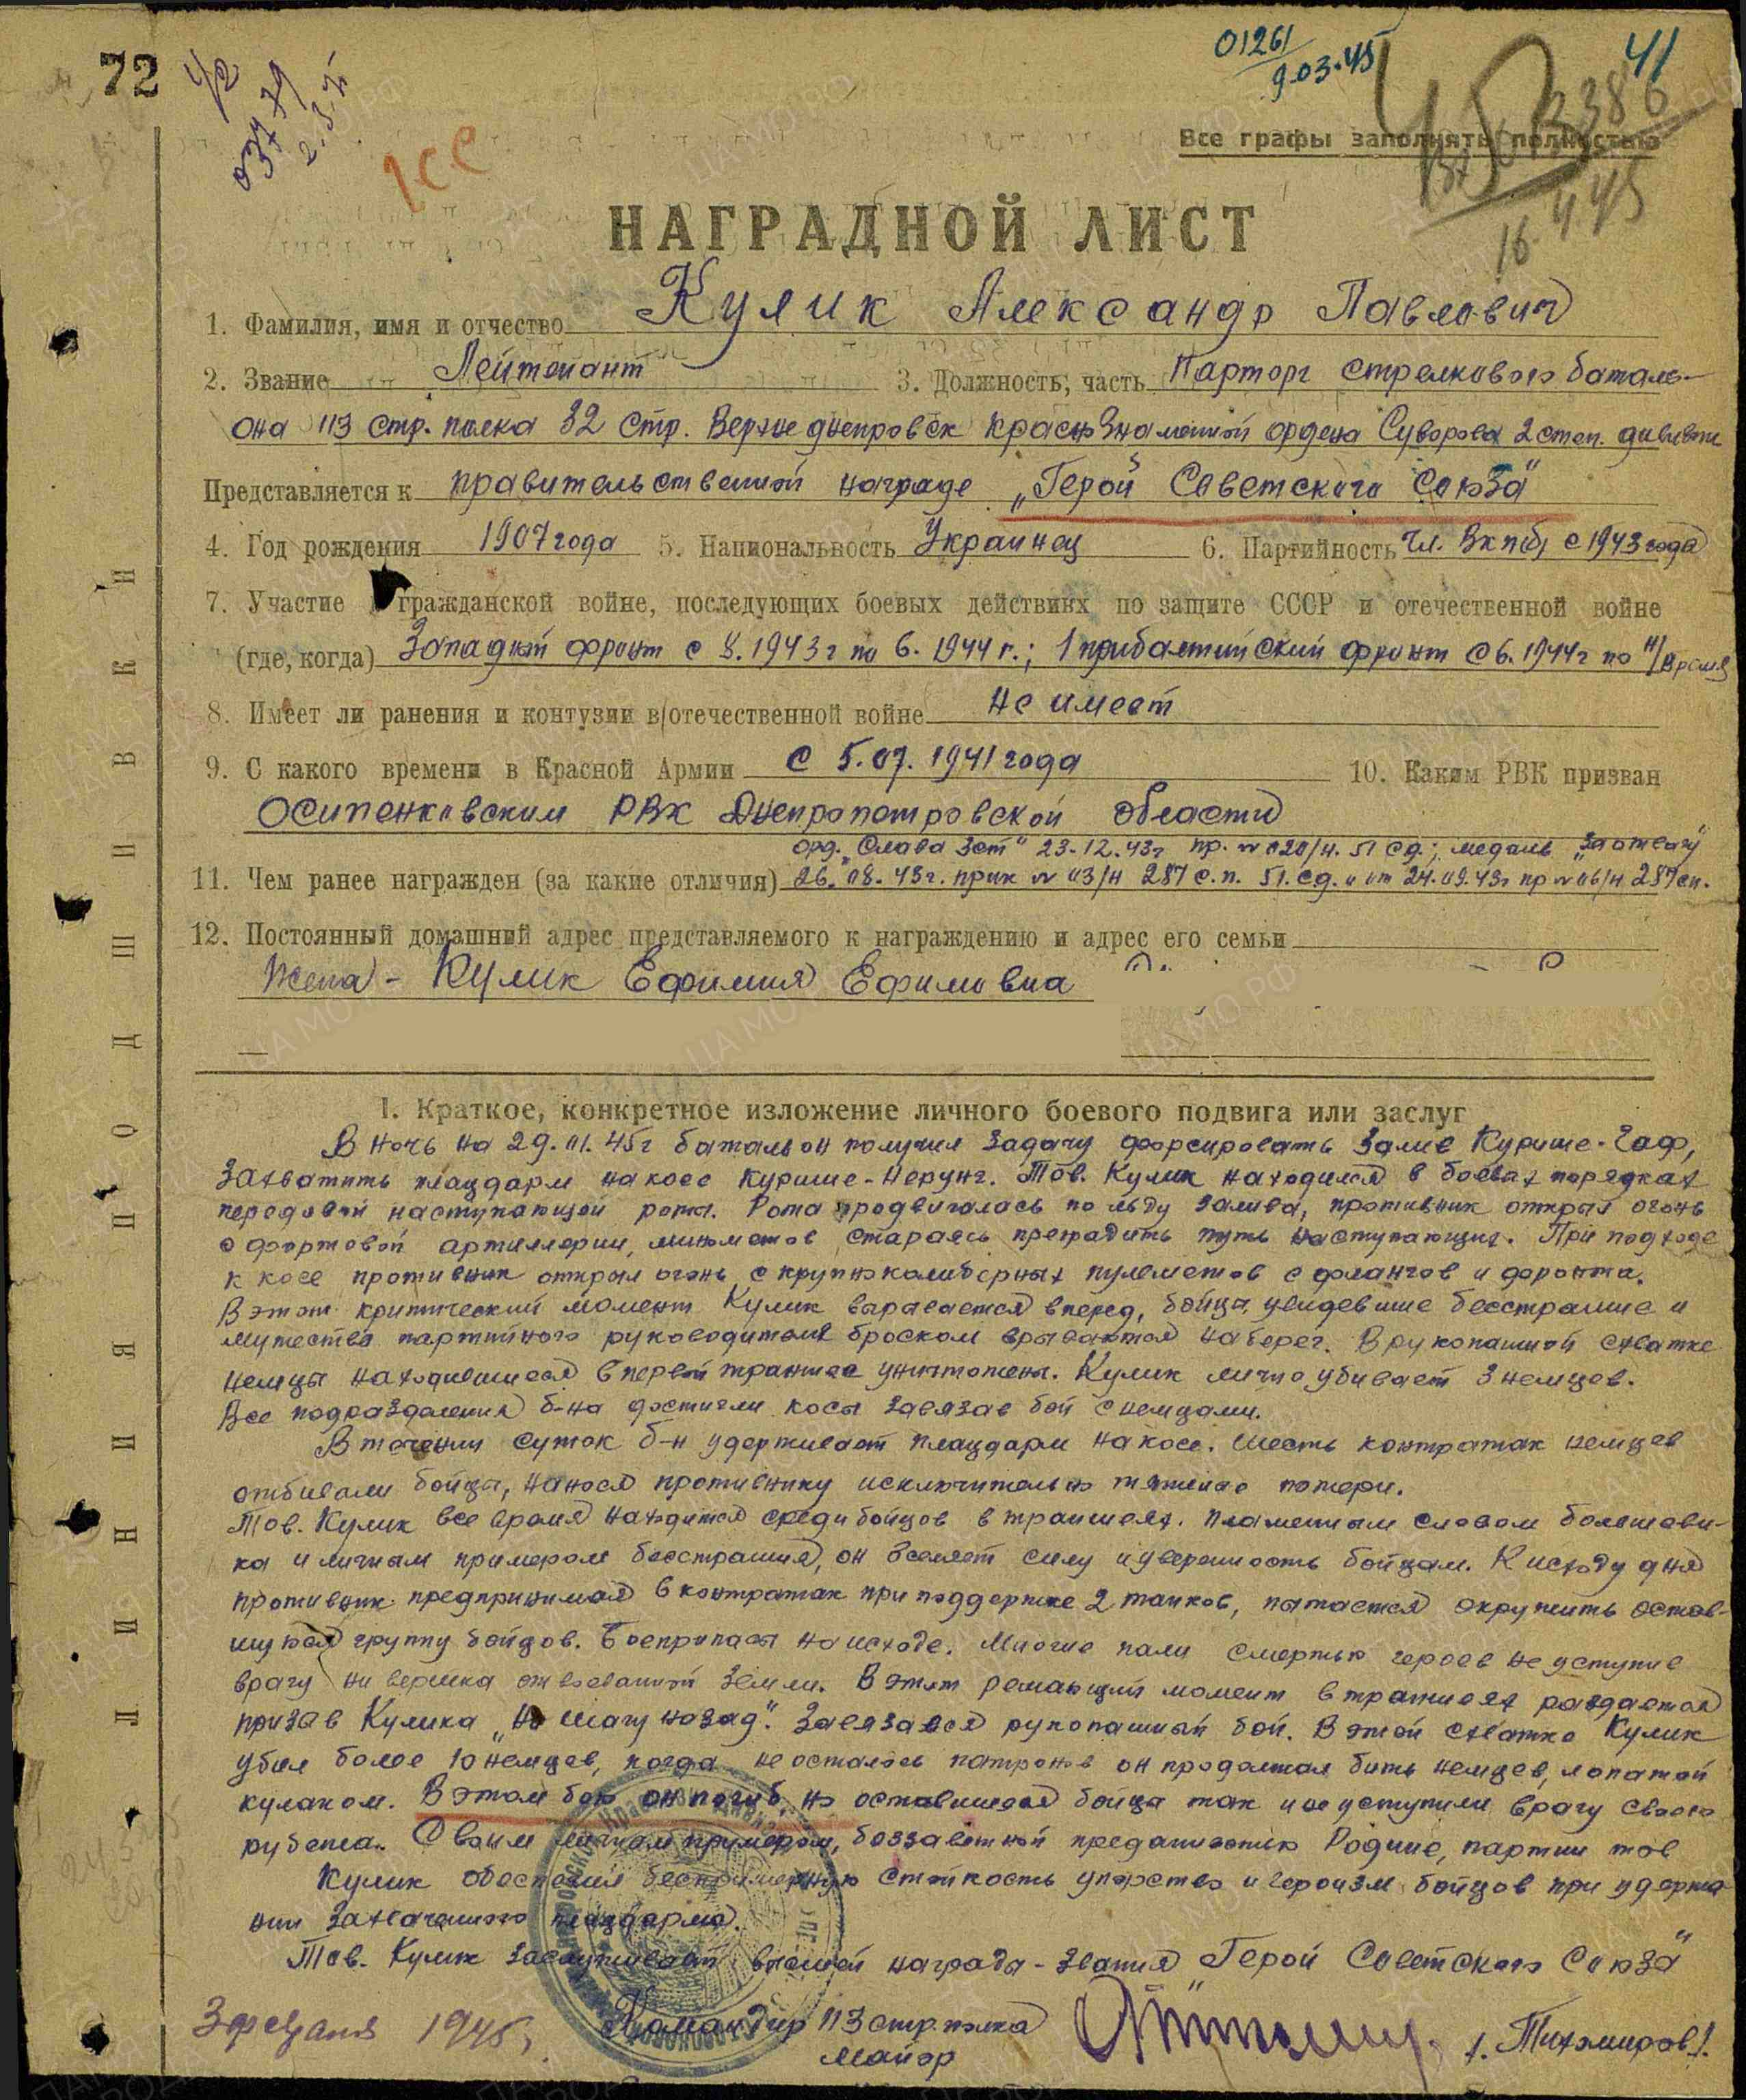 72
42
03779
01261
9.03.45
41
Все графы заполнять полностью
16 4 45
НАГРАДНОЙ ЛИСТ
1. Фамилия, имя и отчество Кулик Александр Павлович
2. Звание Лейтенант 3. Должность, часть Парторг стрелкового баталь-
она 113 стр. полка 32 стр. Верхнеднепровск Краснознаменной ордена Суворова 2 степ. дивизии
Представляется к правительственной награде „Герой Советского Союза"
4. Год рождения 1907 года 5. Национальность Украинец 6. Партийность Чл. ВКП(б) с 1943 года
7. Участие в гражданской войне, последующих боевых действиях по защите СССР и отечественной войне
(где, когда) Западный фронт с 8.1943 г по 6.1944 г.; 1 прибалтийский фронт с 6.1944 г по н/время
8. Имеет ли ранения и контузии в отечественной войне не имеет
9. С какого времени в Красной Армии с 5.07.1941 года 10. Каким РВК призван
Осипенковским РВК Днепропетровской области
орд. „Слава 3 ст" 23.12.43 г пр. № 020/н. 51 сд.; медаль „За отвагу"
11. Чем ранее награжден (за какие отличия) 26.08.43 г. прик № 03/н 287 с.п. 51. сд. и от 24.09.43 г пр № 06/н 287 сп.
12. Постоянный домашний адрес представляемого к награждению и адрес его семьи
Жена - Кулик Ефимия Ефимовна
ЛИНИЯ ПОДШИВКИ
1. Краткое, конкретное изложение личного боевого подвига или заслуг
В ночь на 29.01.45 г батальон получил задачу форсировать залив Куришe-Гаф,
захватить плацдарм на косе Куришe-Нерунг. Тов. Кулик находился в боевых порядках
передовой наступающей роты. Рота продвигалась по льду залива, противник открыл огонь
с фортовой артиллерии, минометов стараясь преградить путь наступающих. При подходе
к косе противник открыл огонь с крупнокалиберных пулеметов с флангов и фронта.
В этот критический момент Кулик вырывается вперед, бойцы, увидевшие бесстрашие и
мужество партийного руководителя броском врываются на берег. В рукопашной схватке
немцы находившиеся в первой траншее уничтожены. Кулик лично убивает 3 немцев.
Все подразделения б-на достигли косы завязав бой с немцами.
В течении суток б-н удерживает плацдарм на косе. Шесть контратак немцев
отбивали бойцы, нанося противнику исключительно тяжелые потери.
Тов. Кулик все время находится среди бойцов в траншеях. Пламенным словом большеви-
ка и личным примером бесстрашия, он вселяет силу и уверенность бойцам. К исходу дня
противник предпринимая 6 контратак при поддержке 2 танков, пытается окружить остав-
шуюся группу бойцов. Боеприпасы на исходе. Многие пали смертью героев не уступив
врагу ни вершка отвоеванной земли. В этот решающий момент в траншеях раздается
призыв Кулика „Ни шагу назад". Завязался рукопашный бой. В этой схватке Кулик
убил более 10 немцев, когда не осталось патронов он продолжал бить немцев, лопатой
кулаком. В этом бою он погиб, но оставшиеся бойцы так и не уступили врагу своего
рубежа. Своим личным примером, беззаветной преданностью Родине, партии тов
Кулик обеспечил беспримерную стойкость упорство и героизм бойцов при удержа-
нии захваченного плацдарма.
Тов. Кулик заслуживает высшей награды - звания „Герой Советского Союза"
3 февраля 1945 г. Командир 113 стр. полка
Майор /. Тихомиров /.